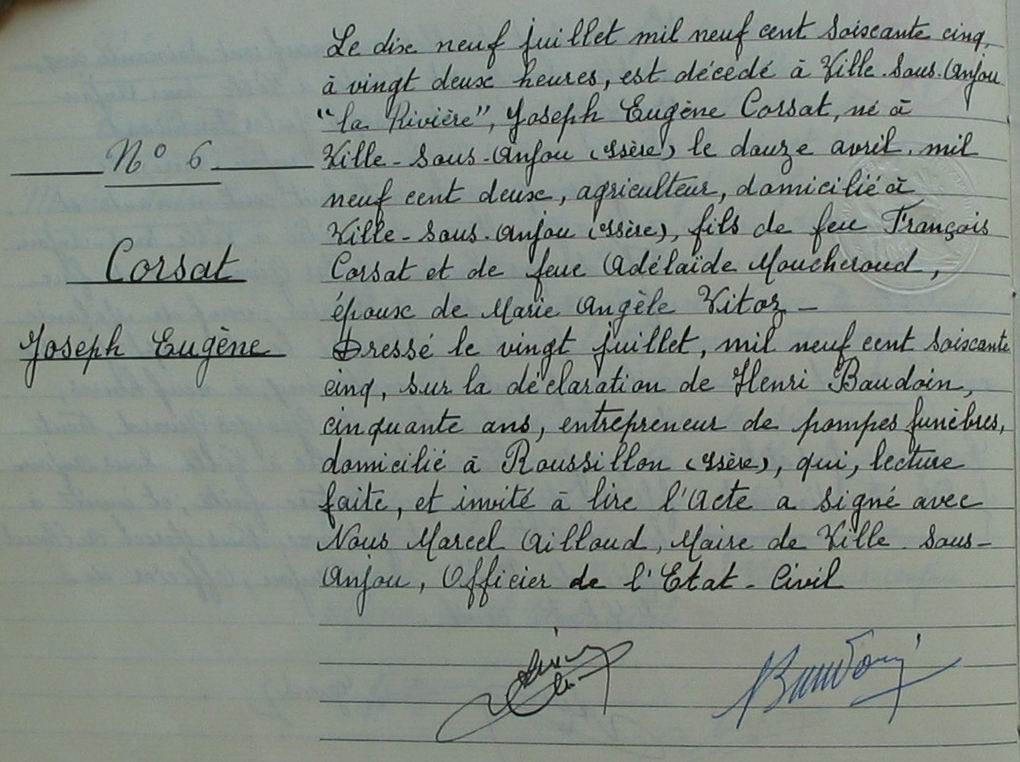 Le dix neuf juillet mil neuf cent soixante cinq,
à vingt deux heures, est décédé à Ville-Sous-Anjou
"la Rivière", Joseph Eugène Corsat, né à
N° 6
Ville-Sous-Anjou (Isère) le douze avril, mil
neuf cent deux, agriculteur, domicilié à
Ville-Sous-Anjou (Isère), fils de feu François
Corsat
Corsat et de feue Adélaïde Moucheroud,
époux de Marie Angèle Vitoz —
Joseph Eugène
Dressé le vingt juillet, mil neuf cent soixante
cinq, sur la déclaration de Henri Baudoin,
cinquante ans, entrepreneur de pompes funèbres,
domicilié à Roussillon (Isère), qui, lecture
faite, et invité à lire l'acte a signé avec
Nous Marcel Aillaud, Maire de Ville-Sous-
Anjou, Officier de l'Etat-Civil
Baudoin